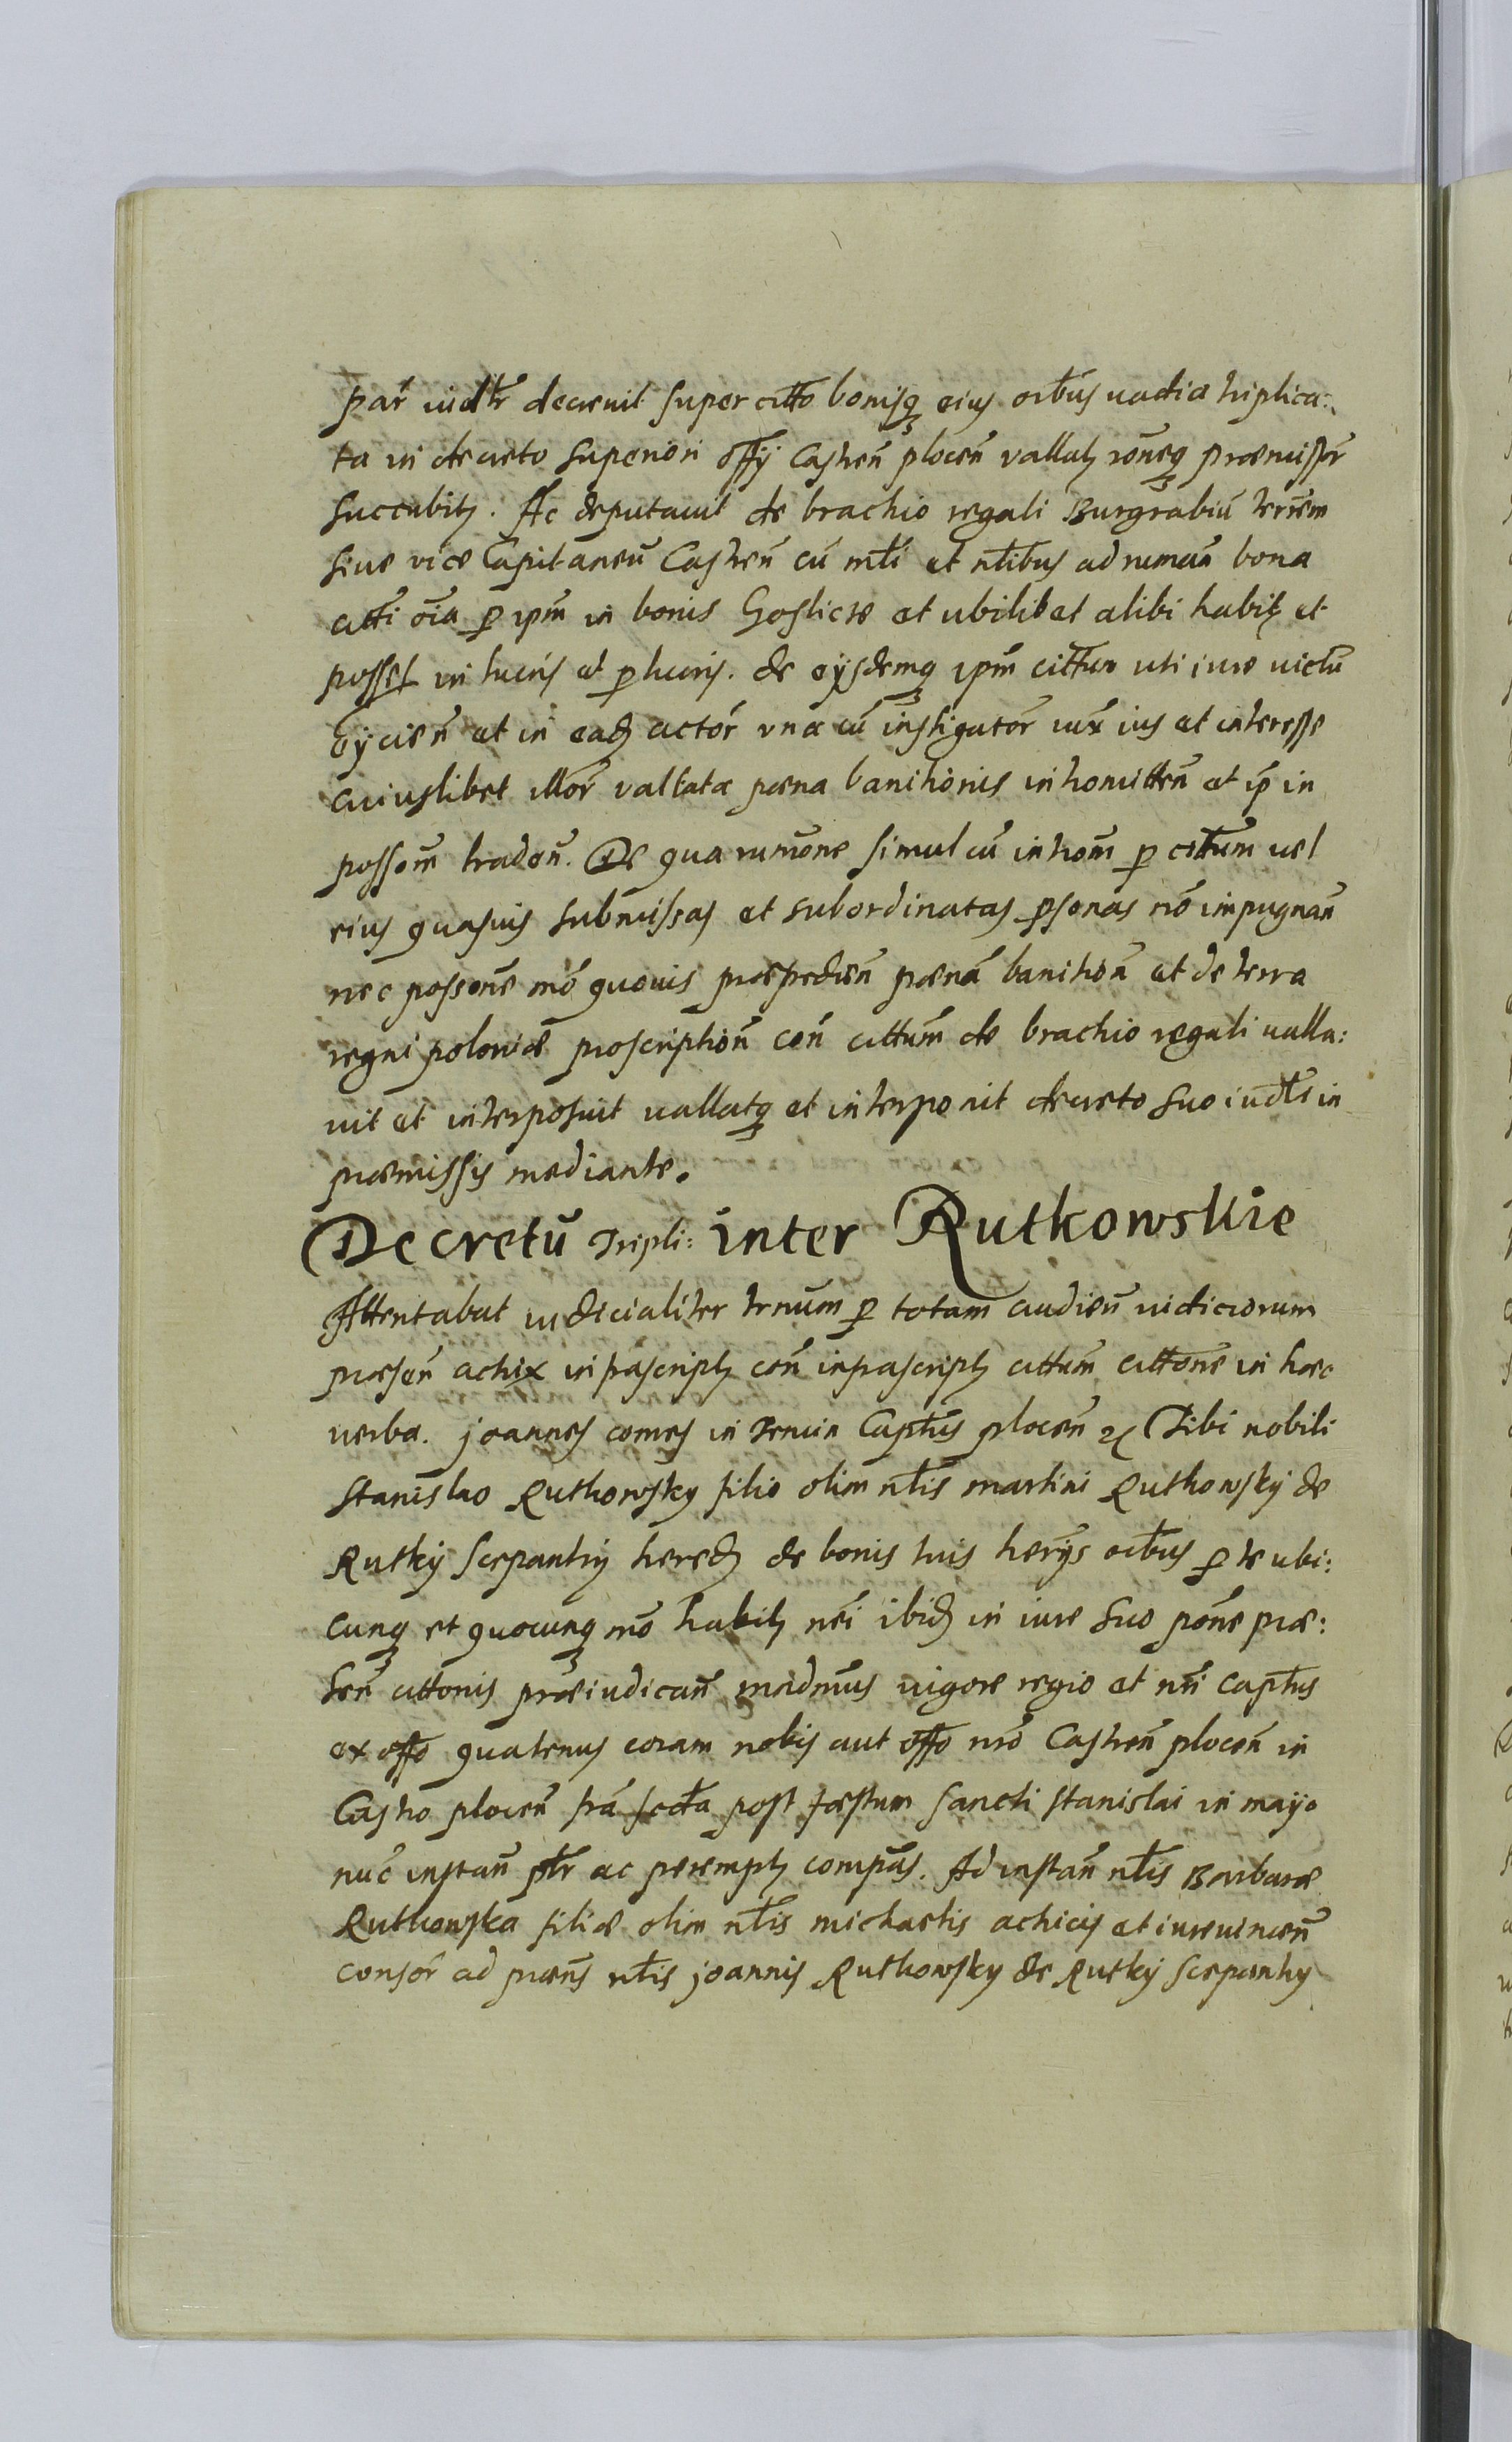 par iudtr decrevit super citto bonisq eius oibus vadia triplica:
ta in decreto superiori offy Castren plocen vallatz roneq præmissor
succubitz. Ac deputavit de brachio regali Burgrabiu terrem
sive vice Capitaneu Castren cu mtli et ntlibus ad ruman bona
citti oia p ipm in bonis Goslicze et ubilibet alibi habitz et
posses in lucris et p lucris. de eysdemq ipm cittum uti iure victu
Eyicien et in eadz actor una cu instigator iux ius et interesse
cuiuslibet illor vallata pæna banitionis intromitten et ip in
possom traden. De qua rumone simul cu introm p cittum vel
eius quasvis submissas et subordinatas psonas no impugnan
nec possone mo quovis præpedien pænã banition et de terra
regni poloniæ proscription con cittum de brachio regali valla:
vit et interposuit vallatq et interponit decreto suo iudtli in
præmissis mediante.
Decretu Tripli: inter Rutkowskie
Attentabat iudicialiter trnum p totam audien iudiciorum
præsen actrix infrascriptz con infrascriptz cittum cittone in hæc
verba. joannes comes in Tencin Captus plocen &c Tibi nobili
Stanislao Rutkowsky filio olim ntlis martini Rutkowsky de
Rutky Scepanky heredz de bonis tuis herys oibus p te ubi:
cunq et quocunq mo habitz nei ibidz in iure suo pone præ:
sen cittonis præiudican mndmus vigore regio et nri captus
ex offo quatenus coram nobis aut offo nro Castren plocen in
Castro plocen fra secda post fæstum sancti stanislai in mayo
nuc instan ptr ac peremptz compas. Ad instan ntlis Barbaræ
Rutkowska filiæ olim ntlis michaelis actricis et iurevincen
consor ad præns ntlis joannis Rutkowsky de Rutky Scepanky